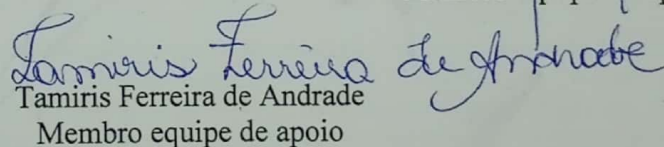 Tamiris Ferreira de Andrade
Tamiris Ferreira de Andrade
Membro equipe de apoio